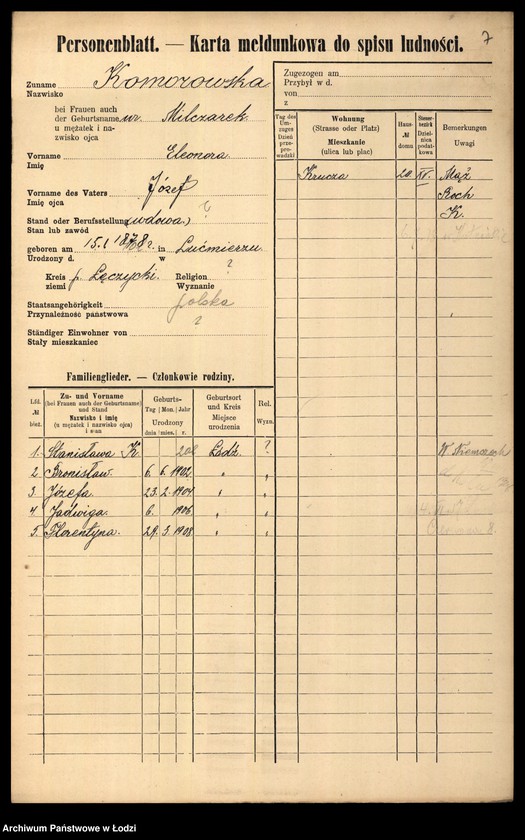 7
Personenblatt. — Karta meldunkowa do spisu ludności.
Zuname Komorowska
Nazwisko
bei Frauen auch
der Geburtsname ur. Milczarek
u mężatek i na-
zwisko ojca
Vorname Eleonora
Imię
Vorname des Vaters Józef
Imię ojca
Stand oder Berufsstellung (wdowa) ?
Stan lub zawód
geboren am 15. 1 1878 r. in Lućmierzu
Urodzony d. w
Kreis p. Łęczycki. Religion ?
ziemi Wyznanie
Staatsangehörigkeit polska
Przynależność państwowa ?
Ständiger Einwohner von
Stały mieszkaniec
Zugezogen am
Przybył w d.
von
z
Tag des Um-zuges Dzień prze-prowadzki
Wohnung (Strasse oder Platz) Mieszkanie (ulica lub plac)
Haus-№ domu
Steuer-bezirk Dziel-nica podat-kowa
Bemerkungen Uwagi
Krucza 20. XV. Mąż
Roch
K.
Familienglieder. — Członkowie rodziny.
Lfd. № bież.
Zu- und Vorname (bei Frauen auch der Geburtsname) und Stand Nazwisko i imię (u mężatek i nazwisko ojca) i stan
Geburts- Tag Mon. Jahr Urodzony dnia mies. r.
Geburtsort und Kreis Miejsce urodzenia
Rel. Wyzn.
1. Stanisława K. Łódź. ?
2. Bronisław. 6. 6. 1902. " "
3. Józefa. 23. 2. 1904 " "
4. Jadwiga. 6. 1906. " "
5. Florentyna. 29. 3. 1908 " "
Archiwum Państwowe w Łodzi